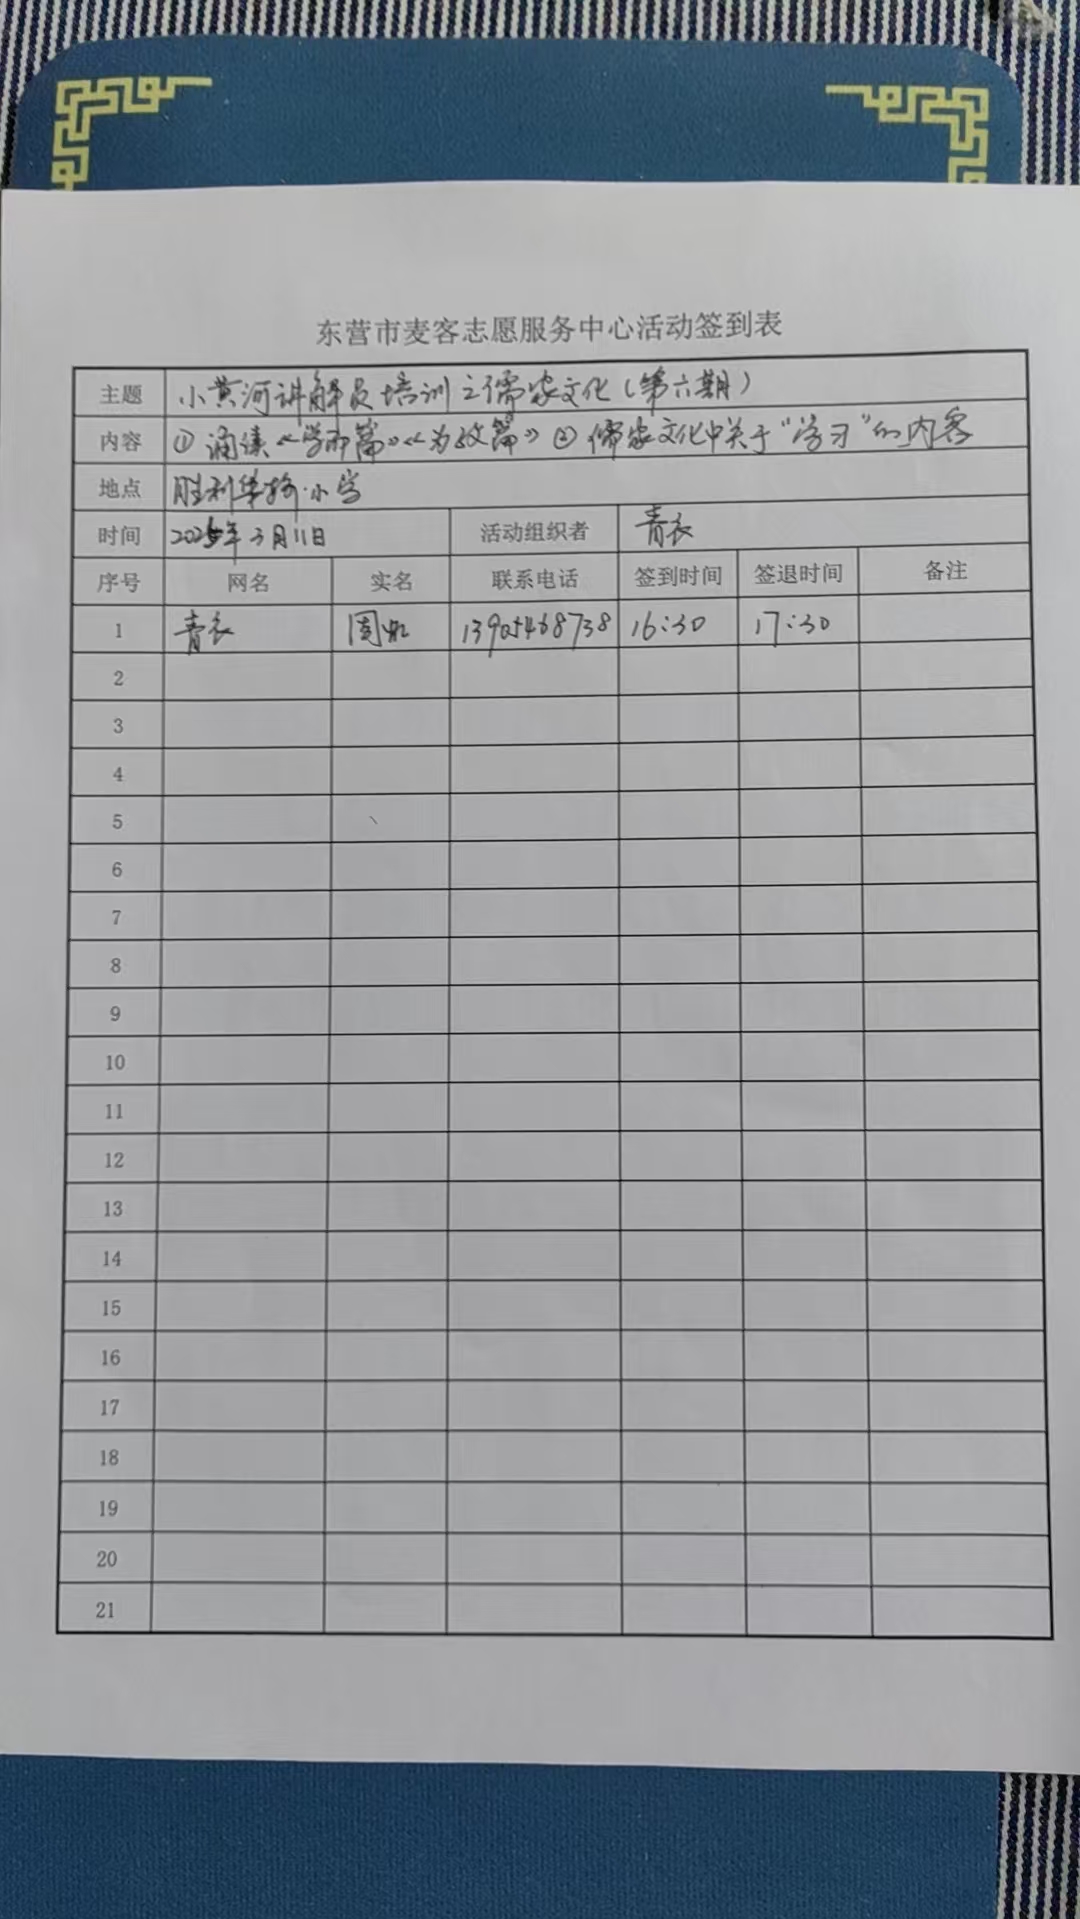 东营市麦客志愿服务中心活动签到表
主题 小黄河讲解员培训之儒家文化(第六期)
内容 ① 诵读《学而篇》《为政篇》② 儒家文化中关于“学习”的内容
地点 胜利 小学
时间 2025年3月11日 活动组织者 青衣
序号 网名 实名 联系电话 签到时间 签退时间 备注
1 青衣 周 13905468738 16:30 17:30
2
3
4
5
6
7
8
9
10
11
12
13
14
15
16
17
18
19
20
21